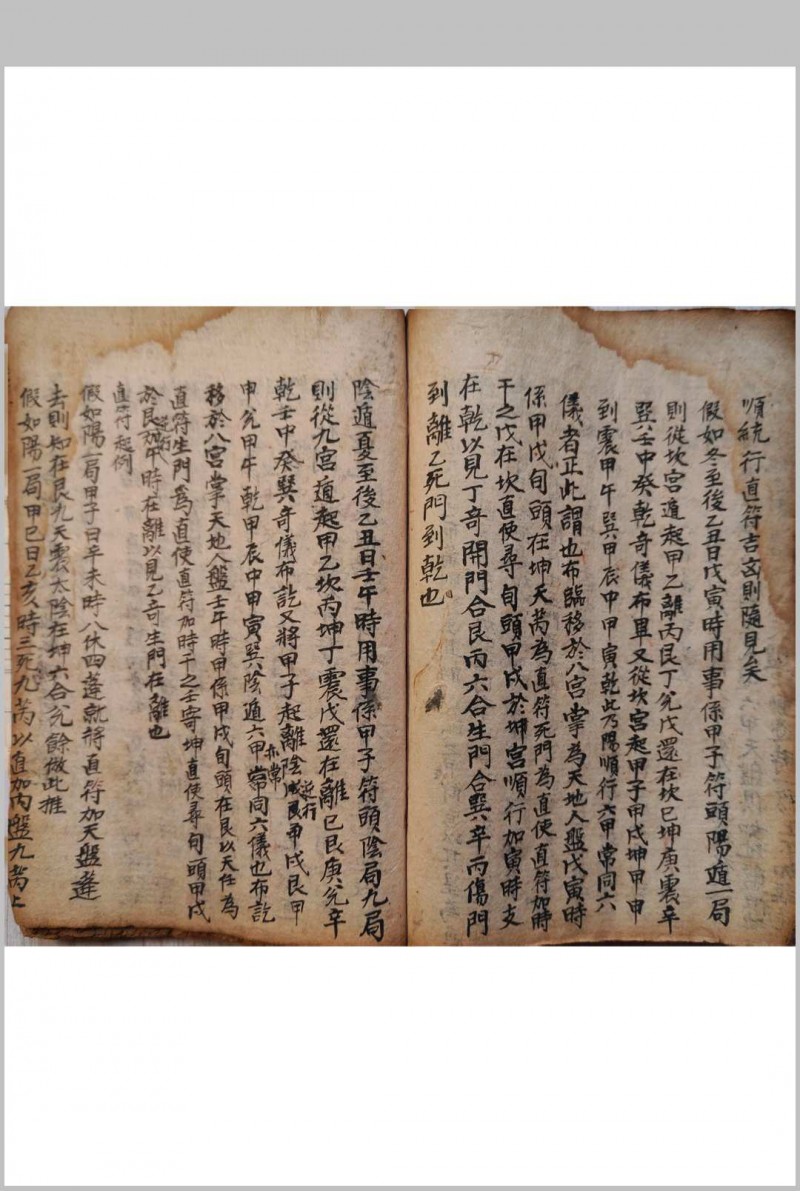 順統行直符吉凶則隨見矣
假如冬至後乙丑日戊寅時用事係甲子符頭陽遁一局
則從坎宮遁起甲乙離丙艮丁兌戊還在坎巳坤庚震辛
巽壬中癸乾奇儀布畢又從坎宮起甲子甲戌坤甲申
到震甲午巽甲辰中甲寅乾此乃陽順行六甲常同六
儀者正此謂也布臨移於八宮掌為天地人盤戊寅時
係甲戌旬頭在坤天芮為直符死門為直使直符加時
干之戊在坎直使尋旬頭甲戌於坤宮順行加寅時支
在乾以見丁奇開門合艮丙六合生門合巽辛丙傷門
到離乙死門到乾也
陰遁夏至後乙丑日壬午時用事係甲子符頭陰局九局
則從九宮遁起甲乙坎丙坤丁震戊還在離巳艮庚兌辛
乾壬中癸巽奇儀布訖又將甲子起離陰逆行甲戌艮甲
申兌甲午乾甲辰中甲寅巽陰遁六甲亦常同六儀也布訖
移於八宮掌天地人盤壬午時甲係甲戌旬頭在艮以天任為
直符生門為直使直符加時干之壬寄坤直使尋旬頭甲戌
於艮逆行加午時在離以見乙奇生門在離也
直符起例
假如陽一局甲子日辛未時八休四蓬就將直符加天盤蓬
去則知在艮九天震太陰在坤六合兌餘倣此推
假如陽一局甲巳日乙亥時三死九芮以直加丙盤九芮上